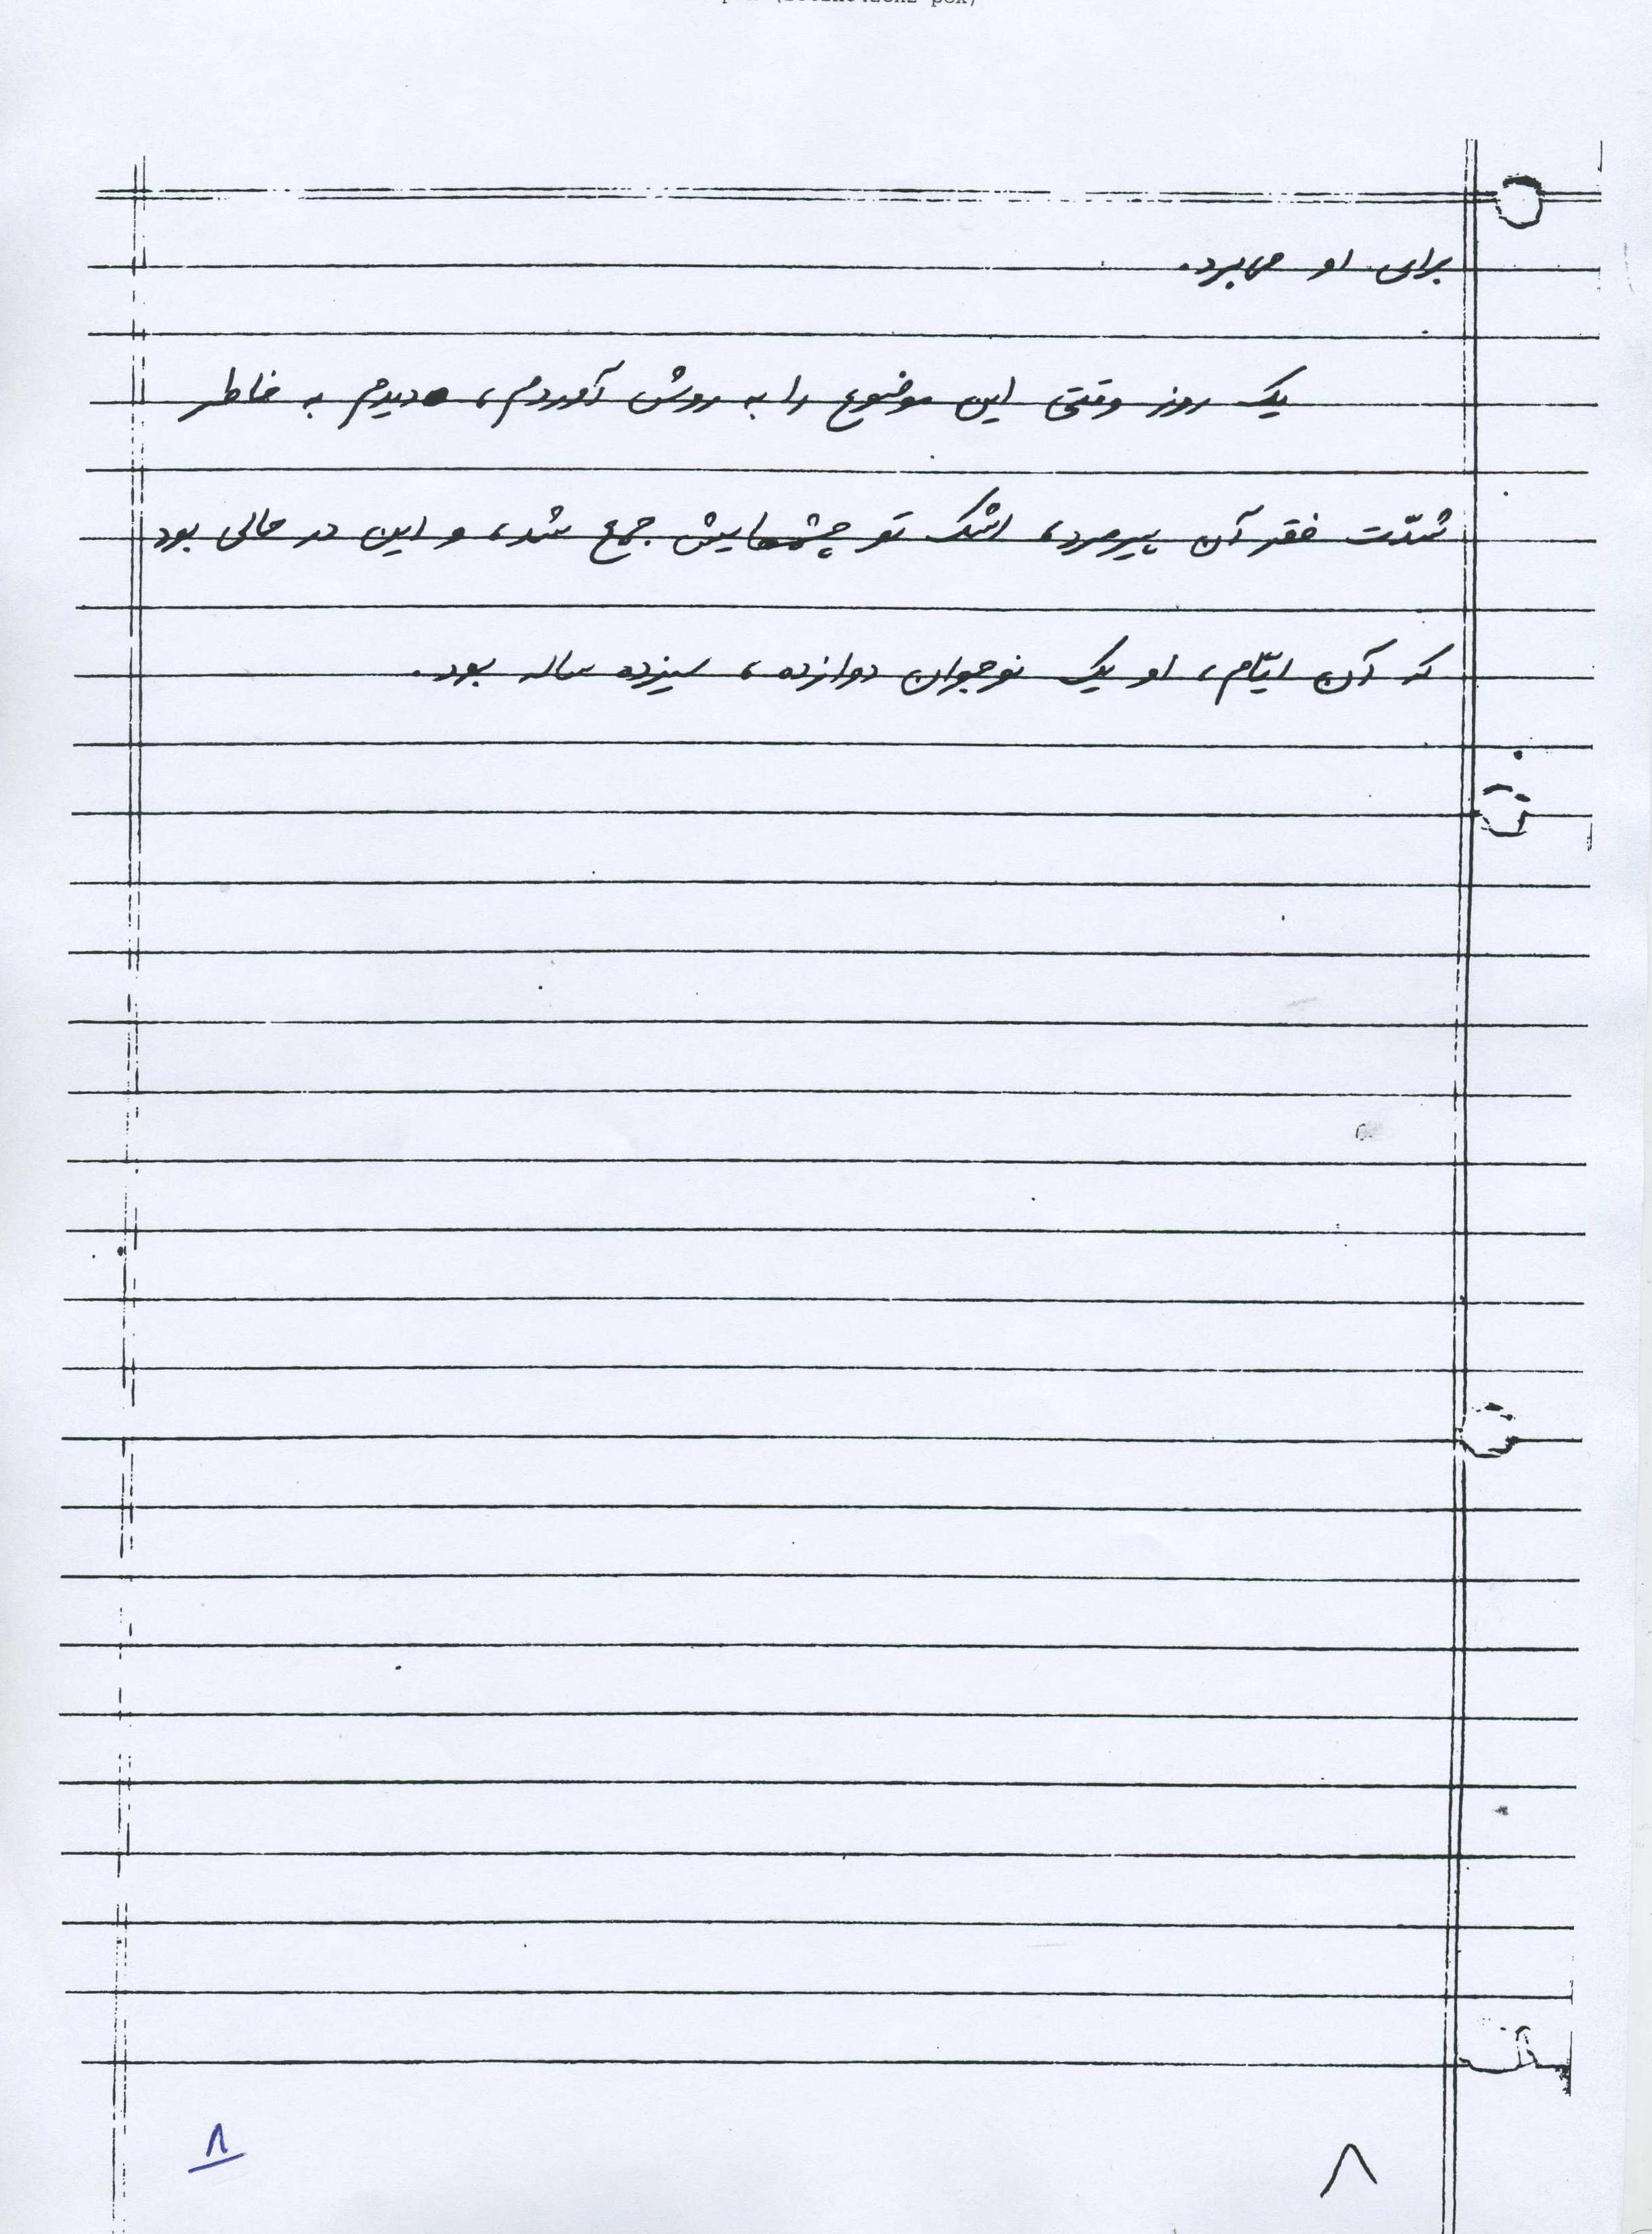 برای او می‌برد.
یک روز وقتی این موضوع را به روش آوردم، دیدم به خاطر
شدّت فقر آن پیرمرد، اشک تو چشمهایش جمع شد، و این در حالی بود
که آن ایّام، او یک نوجوان دوازده، سیزده ساله بود.
۸
۸